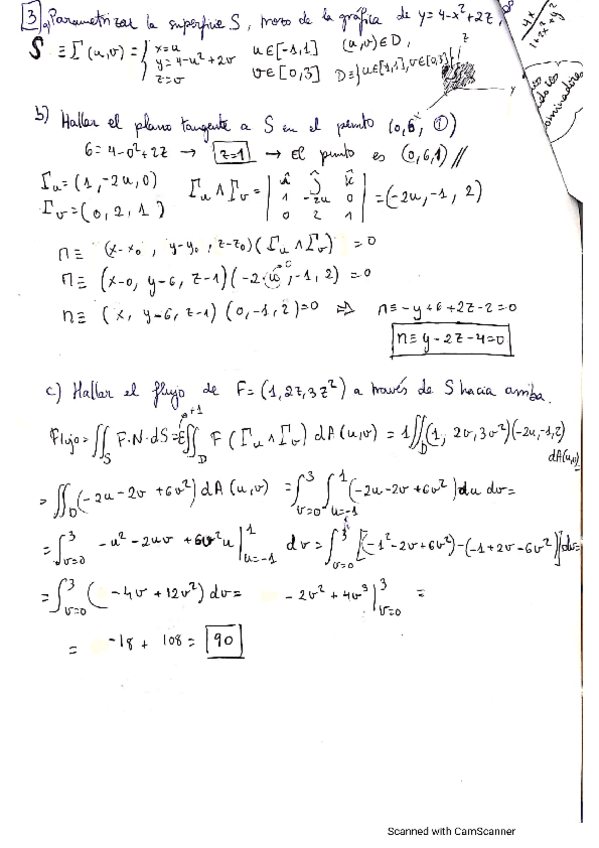 3 a) Parametrizar la superficie S, trozo de la gráfica de y=4-x²+2z,
S ≡ Γ(u,v) = { x=u u∈[-1,1] (u,v)∈D,
y=4-u²+2v
z=v v∈[0,3] D≡{u∈[-1,1], v∈[0,3]}
z
y
4x
b) Hallar el plano tangente a S en el punto (0,6,1)
6=4-0²+2z → z=1 → El punto es (0,6,1)//
Γu=(1,-2u,0) Γu∧Γv = | i j k | = (-2u,-1,2)
1 -2u 0
Γv=(0,2,1) 0 2 1
π≡ (x-x₀, y-y₀, z-z₀)(Γu∧Γv) = 0
π≡ (x-0, y-6, z-1)(-2·u, -1, 2) = 0
π≡ (x, y-6, z-1)(0,-1,2)=0 ⇒ π≡-y+6+2z-2=0
π≡y-2z-4=0
c) Hallar el flujo de F=(1,2z,3z²) a través de S hacia arriba.
Flujo=∬S F·N·dS=ε∬D F(Γu∧Γv)dA(u,v) = 1∬D(1, 2v, 3v²)(-2u,-1,2) dA(u,v)
= ∬D(-2u-2v+6v²)dA(u,v) = ∫v=0 3 ∫u=-1 1 (-2u-2v+6v²)du dv=
= ∫v=0 3 -u²-2uv+6v²u |u=-1 1 dv = ∫v=0 3 [(-1²-2v+6v²)-(-1+2v-6v²)]dv=
= ∫v=0 3 (-4v+12v²)dv= -2v²+4v³ |v=0 3 =
= -18+108= 90
Scanned with CamScanner